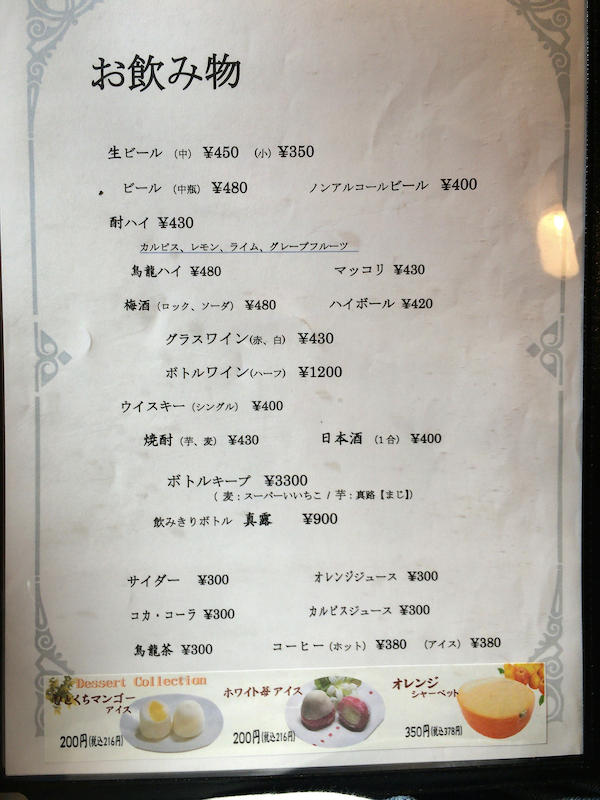 お飲み物
生ビール （中） ¥450 （小）¥350
ビール （中瓶） ¥480 ノンアルコールビール ¥400
酎ハイ ¥430
カルピス、レモン、ライム、グレープフルーツ
烏龍ハイ ¥480 マッコリ ¥430
梅酒（ロック、ソーダ） ¥480 ハイボール ¥420
グラスワイン(赤、白) ¥430
ボトルワイン(ハーフ) ¥1200
ウイスキー（シングル） ¥400
焼酎（芋、麦） ¥430 日本酒 （1合） ¥400
ボトルキープ ¥3300
（ 麦：スーパーいいちこ / 芋：真路【まじ】）
飲みきりボトル 真露 ¥900
サイダー ¥300 オレンジジュース ¥300
コカ・コーラ ¥300 カルピスジュース ¥300
烏龍茶 ¥300 コーヒー（ホット） ¥380 （アイス） ¥380
Dessert Collection
ひとくちマンゴー
アイス
200円(税込216円)
ホワイト苺アイス
200円(税込216円)
オレンジ
シャーベット
350円(税込378円)